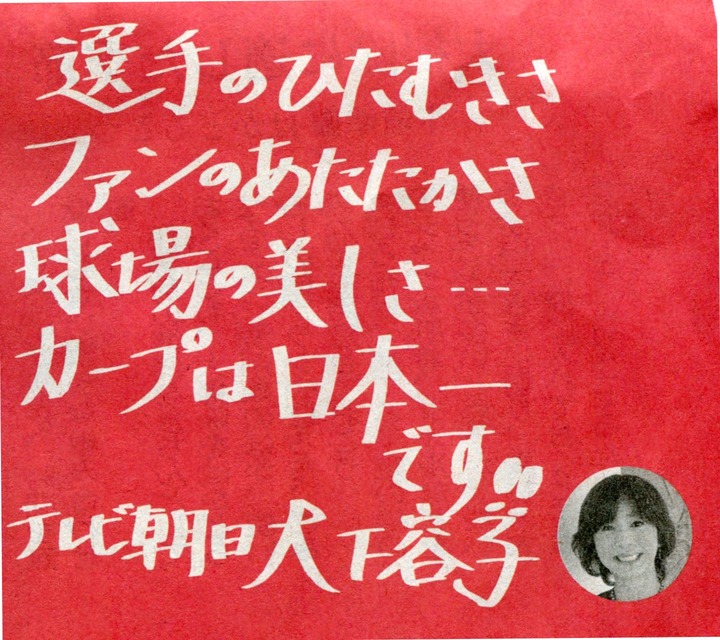 選手のひたむきさ
ファンのあたたかさ
球場の美しさ…
カープは日本一
です。。
テレビ朝日大下容子